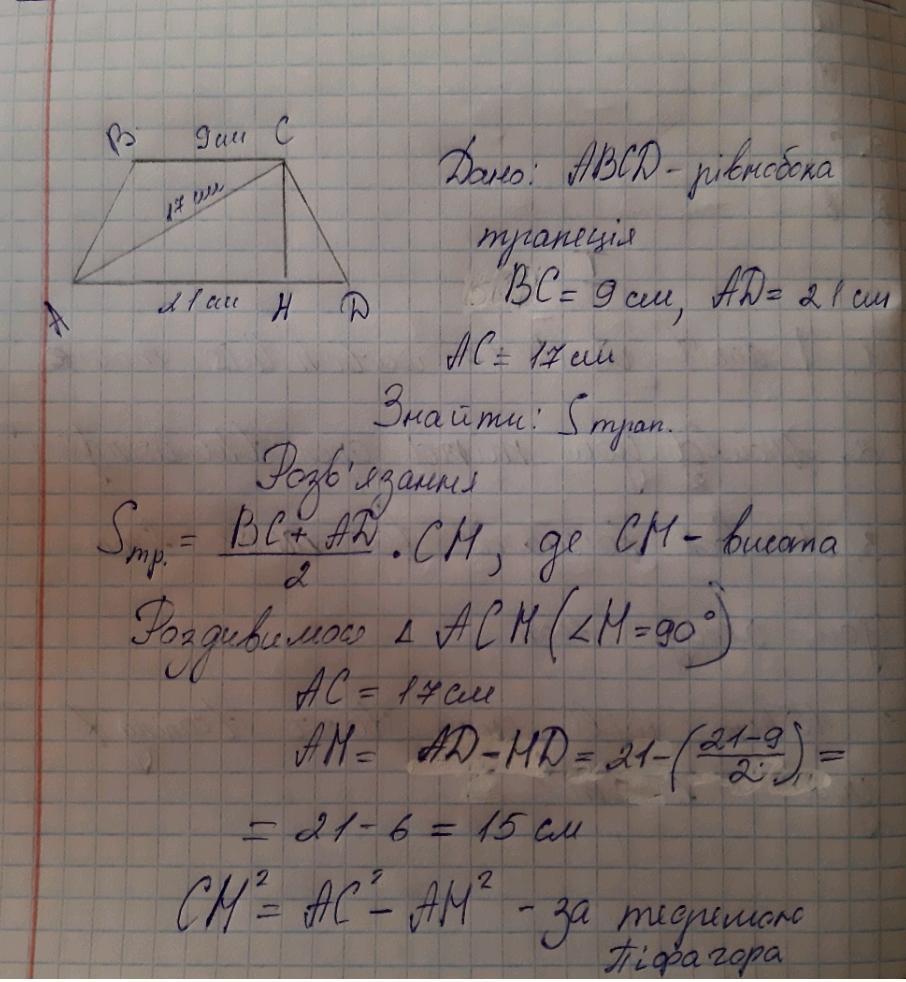 B 9 см C
17 см
A 21 см H D
Дано: ABCD - рівнобока
трапеція
BC = 9 см, AD = 21 см
AC = 17 см
Знайти: S трап.
Розв'язання
Sтр. = (BC + AD)/2 · CH, де CH - висота
Роздивимось △ ACH (∠H = 90°)
AC = 17 см
AH = AD - HD = 21 - ((21-9)/2) =
= 21 - 6 = 15 см
CH² = AC² - AH² - за теоремою
Піфагора